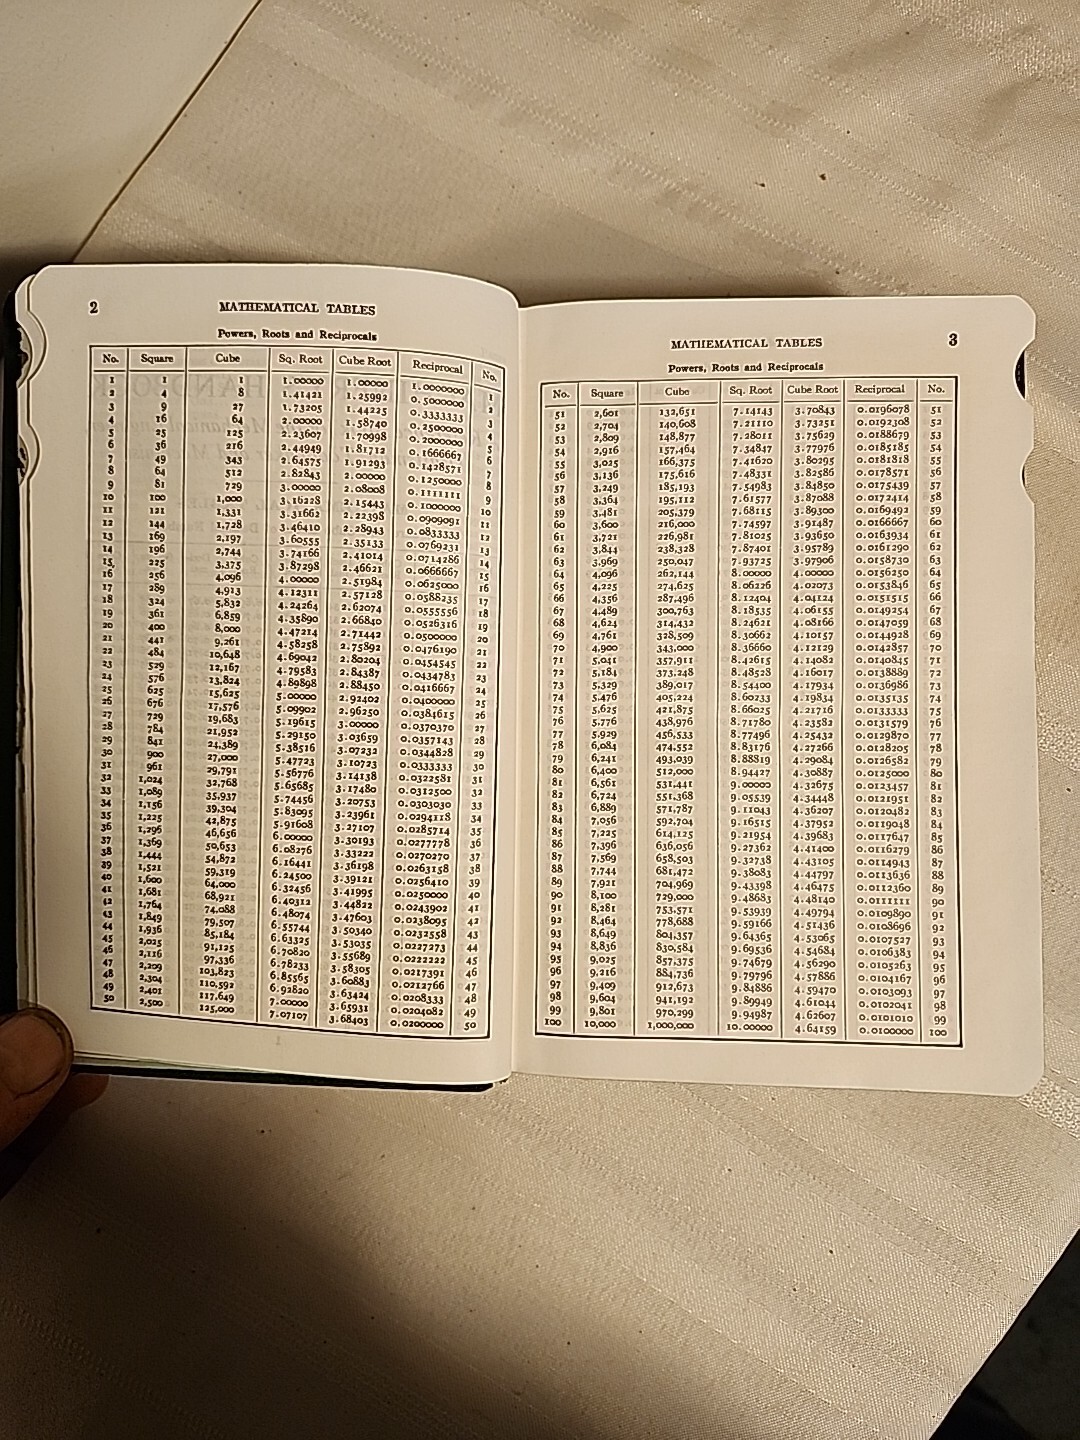 2
MATHEMATICAL TABLES
Powers, Roots and Reciprocals
No. Square Cube Sq. Root Cube Root Reciprocal No.
1 1 1 1.00000 1.00000 1.0000000 1
2 4 8 1.41421 1.25992 0.5000000 2
3 9 27 1.73205 1.44225 0.3333333 3
4 16 64 2.00000 1.58740 0.2500000 4
5 25 125 2.23607 1.70998 0.2000000 5
6 36 216 2.44949 1.81712 0.1666667 6
7 49 343 2.64575 1.91293 0.1428571 7
8 64 512 2.82843 2.00000 0.1250000 8
9 81 729 3.00000 2.08008 0.1111111 9
10 100 1,000 3.16228 2.15443 0.1000000 10
11 121 1,331 3.31662 2.22398 0.0909091 11
12 144 1,728 3.46410 2.28943 0.0833333 12
13 169 2,197 3.60555 2.35133 0.0769231 13
14 196 2,744 3.74166 2.41014 0.0714286 14
15 225 3,375 3.87298 2.46621 0.0666667 15
16 256 4,096 4.00000 2.51984 0.0625000 16
17 289 4,913 4.12311 2.57128 0.0588235 17
18 324 5,832 4.24264 2.62074 0.0555556 18
19 361 6,859 4.35890 2.66840 0.0526316 19
20 400 8,000 4.47214 2.71442 0.0500000 20
21 441 9,261 4.58258 2.75892 0.0476190 21
22 484 10,648 4.69042 2.80204 0.0454545 22
23 529 12,167 4.79583 2.84387 0.0434783 23
24 576 13,824 4.89898 2.88450 0.0416667 24
25 625 15,625 5.00000 2.92402 0.0400000 25
26 676 17,576 5.09902 2.96250 0.0384615 26
27 729 19,683 5.19615 3.00000 0.0370370 27
28 784 21,952 5.29150 3.03659 0.0357143 28
29 841 24,389 5.38516 3.07232 0.0344828 29
30 900 27,000 5.47723 3.10723 0.0333333 30
31 961 29,791 5.56776 3.14138 0.0322581 31
32 1,024 32,768 5.65685 3.17480 0.0312500 32
33 1,089 35,937 5.74456 3.20753 0.0303030 33
34 1,156 39,304 5.83095 3.23961 0.0294118 34
35 1,225 42,875 5.91608 3.27107 0.0285714 35
36 1,296 46,656 6.00000 3.30193 0.0277778 36
37 1,369 50,653 6.08276 3.33222 0.0270270 37
38 1,444 54,872 6.16441 3.36198 0.0263158 38
39 1,521 59,319 6.24500 3.39121 0.0256410 39
40 1,600 64,000 6.32456 3.41995 0.0250000 40
41 1,681 68,921 6.40312 3.44822 0.0243902 41
42 1,764 74,088 6.48074 3.47603 0.0238095 42
43 1,849 79,507 6.55744 3.50340 0.0232558 43
44 1,936 85,184 6.63325 3.53035 0.0227273 44
45 2,025 91,125 6.70820 3.55689 0.0222222 45
46 2,116 97,336 6.78233 3.58305 0.0217391 46
47 2,209 103,823 6.85565 3.60883 0.0212766 47
48 2,304 110,592 6.92820 3.63424 0.0208333 48
49 2,401 117,649 7.00000 3.65931 0.0204082 49
50 2,500 125,000 7.07107 3.68403 0.0200000 50
MATHEMATICAL TABLES
3
Powers, Roots and Reciprocals
No. Square Cube Sq. Root Cube Root Reciprocal No.
51 2,601 132,651 7.14143 3.70843 0.0196078 51
52 2,704 140,608 7.21110 3.73251 0.0192308 52
53 2,809 148,877 7.28011 3.75629 0.0188679 53
54 2,916 157,464 7.34847 3.77976 0.0185185 54
55 3,025 166,375 7.41620 3.80295 0.0181818 55
56 3,136 175,616 7.48331 3.82586 0.0178571 56
57 3,249 185,193 7.54983 3.84850 0.0175439 57
58 3,364 195,112 7.61577 3.87088 0.0172414 58
59 3,481 205,379 7.68115 3.89300 0.0169492 59
60 3,600 216,000 7.74597 3.91487 0.0166667 60
61 3,721 226,981 7.81025 3.93650 0.0163934 61
62 3,844 238,328 7.87401 3.95789 0.0161290 62
63 3,969 250,047 7.93725 3.97906 0.0158730 63
64 4,096 262,144 8.00000 4.00000 0.0156250 64
65 4,225 274,625 8.06226 4.02073 0.0153846 65
66 4,356 287,496 8.12404 4.04124 0.0151515 66
67 4,489 300,763 8.18535 4.06155 0.0149254 67
68 4,624 314,432 8.24621 4.08166 0.0147059 68
69 4,761 328,509 8.30662 4.10157 0.0144928 69
70 4,900 343,000 8.36660 4.12129 0.0142857 70
71 5,041 357,911 8.42615 4.14082 0.0140845 71
72 5,184 373,248 8.48528 4.16017 0.0138889 72
73 5,329 389,017 8.54400 4.17934 0.0136986 73
74 5,476 405,224 8.60233 4.19834 0.0135135 74
75 5,625 421,875 8.66025 4.21716 0.0133333 75
76 5,776 438,976 8.71780 4.23582 0.0131579 76
77 5,929 456,533 8.77496 4.25432 0.0129870 77
78 6,084 474,552 8.83176 4.27266 0.0128205 78
79 6,241 493,039 8.88819 4.29084 0.0126582 79
80 6,400 512,000 8.94427 4.30887 0.0125000 80
81 6,561 531,441 9.00000 4.32675 0.0123457 81
82 6,724 551,368 9.05539 4.34448 0.0121951 82
83 6,889 571,787 9.11043 4.36207 0.0120482 83
84 7,056 592,704 9.16515 4.37952 0.0119048 84
85 7,225 614,125 9.21954 4.39683 0.0117647 85
86 7,396 636,056 9.27362 4.41400 0.0116279 86
87 7,569 658,503 9.32738 4.43105 0.0114943 87
88 7,744 681,472 9.38083 4.44797 0.0113636 88
89 7,921 704,969 9.43398 4.46475 0.0112360 89
90 8,100 729,000 9.48683 4.48140 0.0111111 90
91 8,281 753,571 9.53939 4.49794 0.0109890 91
92 8,464 778,688 9.59166 4.51436 0.0108696 92
93 8,649 804,357 9.64365 4.53065 0.0107527 93
94 8,836 830,584 9.69536 4.54684 0.0106383 94
95 9,025 857,375 9.74679 4.56290 0.0105263 95
96 9,216 884,736 9.79796 4.57886 0.0104167 96
97 9,409 912,673 9.84886 4.59470 0.0103093 97
98 9,604 941,192 9.89949 4.61044 0.0102041 98
99 9,801 970,299 9.94987 4.62607 0.0101010 99
100 10,000 1,000,000 10.00000 4.64159 0.0100000 100